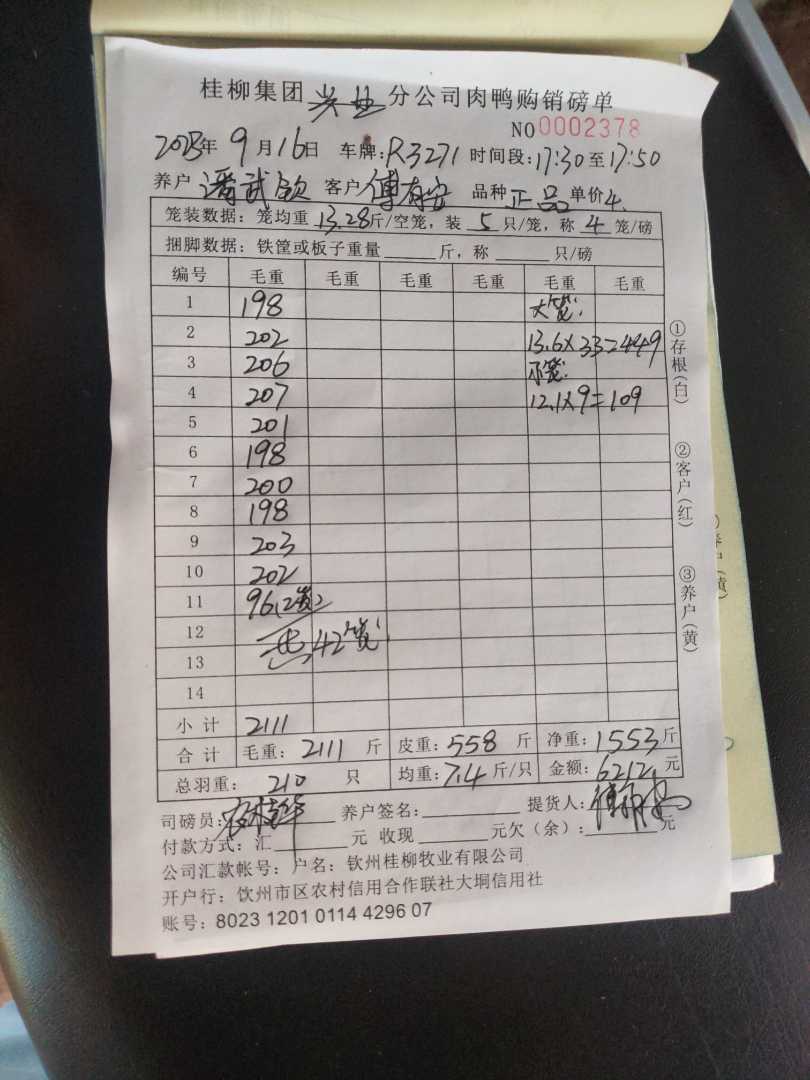 桂柳集团 兴业 分公司肉鸭购销磅单
NO 0002378
2023年 9月 16日 车牌:R3271 时间段:17:30至17:50
养户 潘武钦 客户 傅有安 品种 正品 单价 4.
笼装数据：笼均重 13.28 斤/空笼，装 5 只/笼，称 4 笼/磅
捆脚数据：铁筐或板子重量 斤，称 只/磅
编号 毛重 毛重 毛重 毛重 毛重 毛重
1 198 大笼:
2 202 13.6×33=449
3 206
4 207 12.1×9=109
5 201
6 198
7 200
8 198
9 203
10 202
11 96(2笼)
12 共42笼
13
14
小计 2111
合计 毛重: 2111 斤 皮重: 558 斤 净重: 1553 斤
总羽重: 210 只 均重: 7.4 斤/只 金额: 6212. 元
司磅员: 养户签名: 提货人:
付款方式：汇 元 收现 元欠（余）: 元
公司汇款帐号：户名：钦州桂柳牧业有限公司
开户行：饮州市区农村信用合作联社大垌信用社
账号：8023 1201 0114 4296 07
①存根(白)
②客户(红)
③养户(黄)